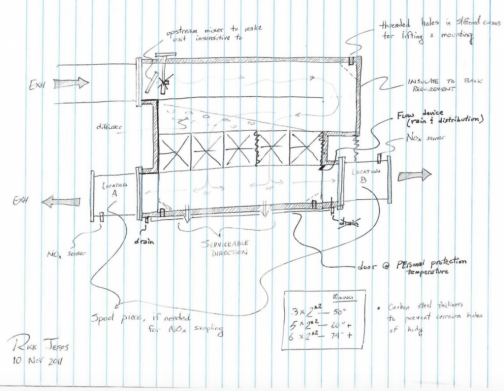 upstream mixer to make
exh insensitive to
threaded holes in corners
for lifting & mounting
EXH
INSULATE TO
REQUIREMENT
diffuser
Flow device
(rain & distribution)
NOx sensor
LOCATION
A
LOCATION
B
EXH
NOx sensor
drain
SERVICEABLE
DIRECTION
drain
door @ PERsonal protection
temperature
Spool piece, if needed
for NOx sampling
3 x 2 — 50"
5 x 2 — 60" +
6 x 2 — 74" +
• Carbon steel thickness
to prevent corrosion holes
of body
10 NOV 2011